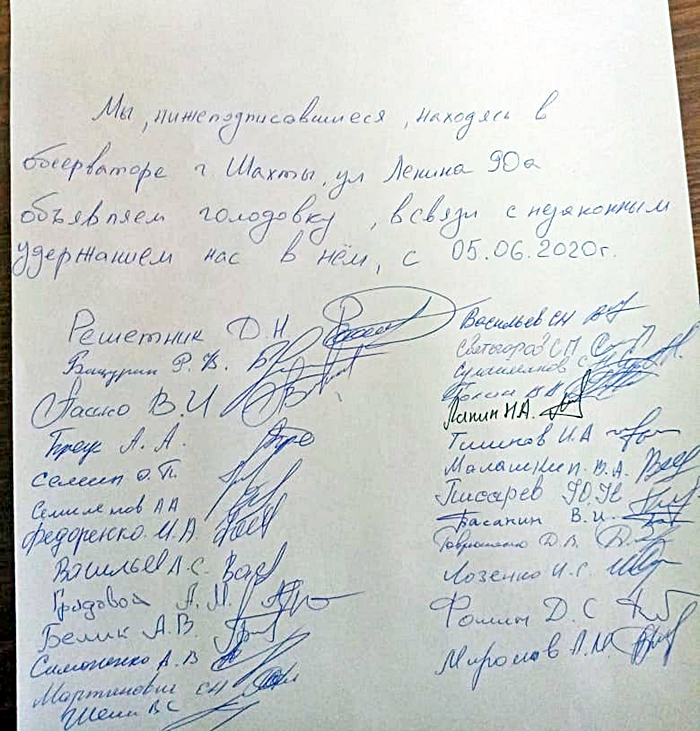 Мы, нижеподписавшиеся, находясь в
обсерваторе г. Шахты, ул Ленина 90а
объявляем голодовку, в связи с незаконным
удержанием нас в нём, с 05.06.2020г.
Решетник Д.Н
Р. В.
Пашко В.И
А. А.
Семин О.П.
А А
Федоренко И.А.
Васильев А.С.
Градовой А.М.
Белик А.В.
Симоненко А.В
Мартинович СН
ВС
Васильев СН
Святогоров СП
Сулейманов
Лапин НА.
Тишков И.А
Малашкин В.А.
Писарев Ю.Н
Басакин В.И.
Гавриленко Д.В.
Лозенко И.С.
Фомин Д.С
Миронов А.М.